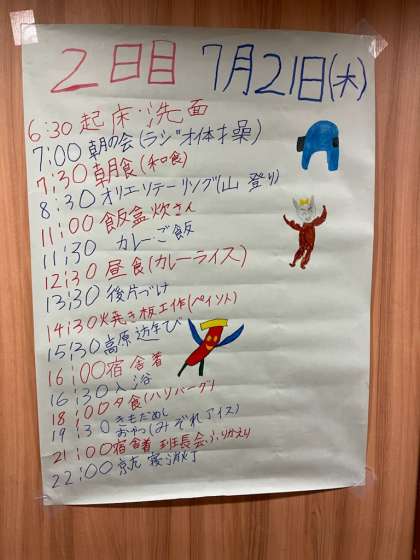 2日目 7月21日(木)
6:30 起床・洗面
7:00 朝の会(ラジオ体操)
7:30 朝食(和食)
8:30 オリエンテーリング(山登り)
11:00 飯盒炊さん
11:30 カレーご飯
12:30 昼食(カレーライス)
13:30 後片づけ
14:30 焼き板工作(ペイント)
15:30 高原遊び
16:00 宿舎着
16:30 入浴
18:00 夕食(ハンバーグ)
19:30 きもだめし
おやつ(みぞれアイス)
21:00 宿舎着 班長会・ふりかえり
22:00 就寝 消灯